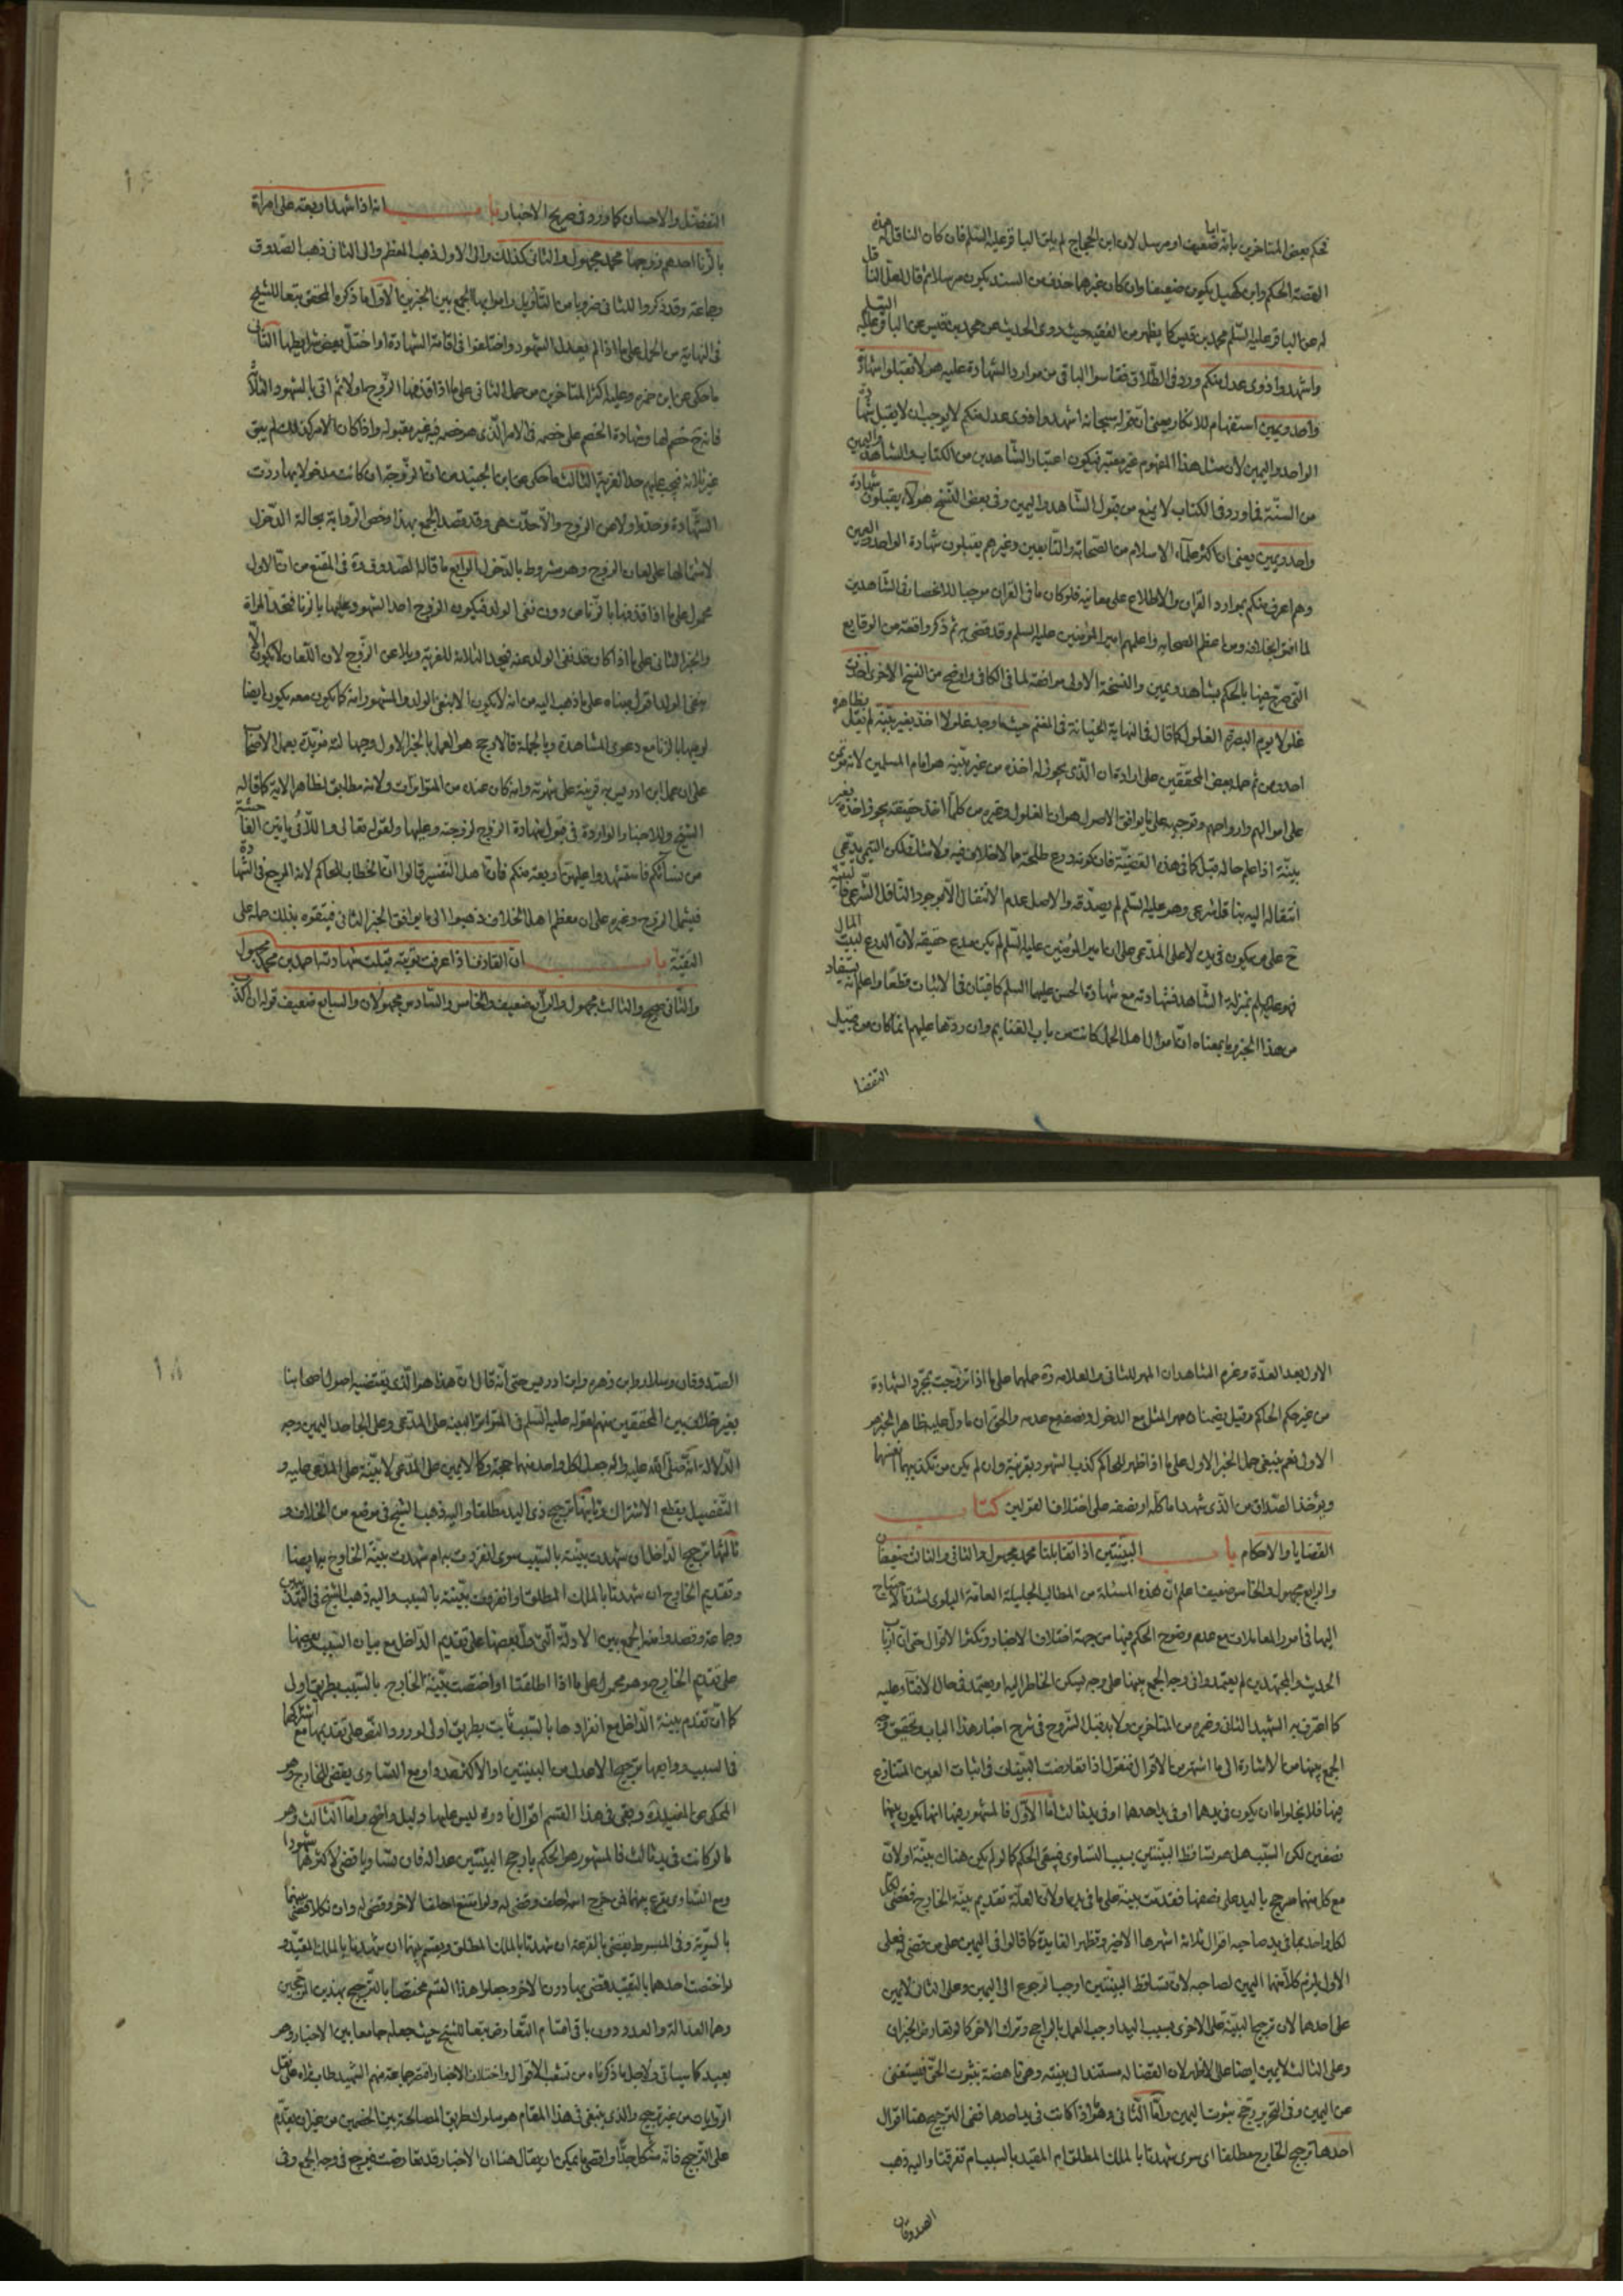 تحكم بعض المتاخرين بانه ضعيف او مرسل لان ابن الحجاج لم يلق الباقر عليه السلم فان كان الناقل له هذه
القصة الحكم وابن كهيل يكون ضعيفا وان كان غيرهما حذف من السند يكون مرسلا ثم قال لعل الناقل
له عن الباقر عليه السلم محمد بن قيس كما يظهر من الفقيه حيث روى الحديث عن محمد بن قيس عن الباقر عليه السلم
واشهدوا ذوى عدل منكم ورد فى الطلاق فقاسوا الباقى من موارد الشهادة عليه هو لا تقبلوا شهادة
واحد ويمين استفهام للانكار يعنى ان قوله سبحانه اشهدوا ذوى عدل منكم لا يوجب ان لا يقبل شهادة
الواحد واليمين لان مثل هذا المفهوم غير معتبر فيكون اعتبار الشاهدين من الكتاب والشاهد واليمين
من السنة فما ورد فى الكتاب لا يمنع من قبول الشاهد واليمين وفى بعض النسخ هؤلاء يقبلون شهادة
واحد ويمين يعنى ان اكثر علماء الاسلام من الصحابة والتابعين وغيرهم يقبلون شهادة الواحد واليمين
وهم اعرف منكم بموارد القران والاطلاع على معانيه فلو كان ما فى القران موجبا للانحصار فى الشاهدين
لما افتوا بخلافه ومن اعظم الصحابه واعلمهم امير المؤمنين عليه السلم وقد قضى به ثم ذكر واقعة من الوقايع
التى صرح فيها بالحكم بشاهد ويمين والنسخة الاولى موافقة لما فى الكافى واوضح من النسخ الاخرى اخذت
غلولا يوم البصرة الغلول كما قال فى النهاية الخيانة فى المغنم حيث ما وجد غلولا اخذ بغير بينة لم نقل بظاهره
احد ومن ثم حمله بعض المحققين على ارادة ان الذى يجوز له اخذه من غير بينة هو امام المسلمين لانه مؤتمن
على اموالهم وارواحهم وتوجيهه على ما يوافق الاصول هو ان الغلول وغيره من كلما اخذ حقيقته يجوز اخذه بغير
بينة اذا علم حاله قبل كما فى هذه القضية فان كونه درع طلحة مما لا خلاف فيه ولا شك لكن التيمى يدعى
انتقاله اليه بناقل شرعى وهو عليه السلم لم يصدقه والاصل عدم الانتقال الا بوجود الناقل الشرعى فالبينة
ح على من يكون فى يده لا على المدعى على ان امير المؤمنين عليه السلم لم يكن مدع حقيقة لان الدرع لبيت المال
فهو عليه السلم بمنزلة الشاهد فشهادته مع شهادة الحسن عليهما السلم كافيتان فى الاثبات قطعا واعلم انه يستفاد
من هذا الخبر وما بمعناه ان اموال اهل الجمل كانت من باب الغنايم وان ردها عليهم انما كان من قبيل
التفضل
التفضل والاحسان كما ورد فى صريح الاخبار باب انه اذا شهد اربعة على امراة
بالزنا احدهم زوجها محمد مجهول والثانى كذلك والى الاول ذهب المعظم والى الثانى ذهب الصدوق
وجماعة وقد ذكروا للثانى ضروبا من التاويل راموا بها الجمع بين الخبرين الاول ما ذكره المحقق تبعا للشيخ
فى النهاية من الحمل على ما اذا لم يعدل الشهود واختلفوا فى اقامة الشهادة او اختل بعض شرايطها الثانى
ما حكى عن ابن حمزه وعليه اكثر المتاخرين من حمل الثانى على ما اذا قذفها الزوج اولا ثم اتى بالشهود الثلاثة
فانه ح خصم لها وشهادة الخصم على خصمه فى الامر الذى هو خصمه فيه غير مقبوله واذا كان الامر كذلك لم يبق
غير ثلاثة فيجب عليهم حد الفرية الثالث ما حكى عن ابن الجنيد من ان الزوجة ان كانت مدخولا بها ردت
الشهادة وحدوا ولاعن الزوج والا حدت هى وقد قصد الجمع بهذا وخص الرواية بحالة الدخول
لاشتمالها على لعان الزوج وهو مشروط بالدخول الرابع ما قاله الصدوق ره فى المقنع من ان الاول
محمول على ما اذا قذفها بالزنا من دون نفى الولد فيكون الزوج احد الشهود عليها بالزنا فتحد المراة
والخبر الثانى على ما اذا كان قد نفى الولد عنه فيحد الثلاثة للفرية ويلاعن الزوج لان اللعان لا يكون الا
بنفى الولد اقول بناه على ما ذهب اليه من انه لا يكون الا بنفى الولد والمشهور انه كما يكون معه يكون ايضا
لرميها بالزنا مع دعوى المشاهدة وبالجملة فالاوجح هو العمل بالخبر الاول وجها لته مؤيدة بعمل الاصحاب
على ان عمل ابن ادريس به قرينة على شهرته وانه كان عنده من المتواترات ولانه مطابق لظاهر الاية كما قاله
الشيخ وللاخبار الواردة فى قبول شهادة الزوج لزوجته وعليها ولقوله تعالى واللاتى ياتين الفاحشة
من نسائكم فاستشهدوا عليهن اربعة منكم فان اهل التفسير قالوا ان الخطاب للحاكم لانه المرجع فى الشهادة
فيشمل الزوج وغيره على ان معظم اهل الخلاف ذهبوا الى ما يوافق الخبر الثانى فيتقوه بذلك حمله على
التقية باب ان القاذف اذا عرفت توبته قبلت شهادته احمد بن محمد مجهول
والثانى صحيح والثالث مجهول والرابع ضعيف والخامس والسادس مجهولان والسابع ضعيف قوله ان اكذب
الاول بعد العدة وغرم الشاهدان المهر للثانى والعلامه ره حملها على ما اذا تزوجت بمجرد الشهادة
من غير حكم الحاكم وقيل يضمنان مهر المثل مع الدخول ونصفه مع عدمه والحق ان ما دل عليه ظاهر الخبر هو
الاول نعم ينبغى حمل الخبر الاول على ما اذا ظهر للحاكم كذب الشهود بقرينة وان لم يكن من تكذيبهما انفسهما
ويؤخذ الصداق من الذى شهدا ما كله او نصفه على اختلاف القولين كتاب
القضايا والاحكام باب البينتين اذا تقابلتا محمد مجهول والثانى والثالث ضعيفان
والرابع مجهول والخامس ضعيف اعلم ان هذه المسئلة من المطالب الجليلة العامة البلوى لشدة الاحتياج
اليها فى امور المعاملات مع عدم وضوح الحكم فيها من جهة اختلاف الاخبار وتكثر الاقوال حتى ان ارباب
الحديث والمجتهدين لم يعتمدوا فى وجه الجمع بينها على وجه يسكن الخاطر اليه او يعتمد فى حال الافتاء عليه
كما اعترف به الشهيد الثانى وغيره من المتاخرين ولا بد قبل الشروح فى شرح اخبار هذا الباب وتحقيق وجه
الجمع بينها من الاشارة الى ما اشتهر من الاقوال فنقول اذا تعارضت البينات فى اثبات العين المتنازع
فيها فلا يخلو اما ان يكون فى يدهما او فى يد احدهما او فى يد ثالث اما الاول فالمشهور فيها انها يكون بينهما
نصفين لكن السبب هل هو تساقط البينتين بسبب التساوى فيبقى الحكم كما لو لم يكن هناك بينة او لان
مع كل منهما مرجح باليد على نصفها فقدمت بينة على ما فى يده او لان العلة تقديم بينة الخارج فقضى لكل
لكل واحد بما فى يد صاحبه اقوال ثلاثة اشهرها الاخير وتظهر الفايدة كما قالوا فى اليمين على من قضى له فعلى
الاول يلزم كلا منهما اليمين لصاحبه لان تساقط البينتين اوجب الرجوع الى اليمين وعلى الثانى لا يمين
على احدهما لان ترجيح البينة على الاخرى بسبب اليد اوجب العمل بالراجح وترك الاخر كما لو تعارض الخبران
وعلى الثالث لا يمين ايضا على الاظهر لان القضا له مستند الى بينته وهى ناهضة بثبوت الحق فيستغنى
عن اليمين وفى التحرير رجح ثبوت اليمين واما الثانى وهو اذا كانت فى يد احدها ففى الترجيح هنا اقوال
احدها ترجيح الخارج مطلقا اى سوى شهدتا بالملك المطلق ام المقيد بالسبب ام تفرقتا واليه ذهب
الصدوقان
الصدوقان وسلار وابن زهره وابن ادريس حتى انه قال ان هذا هو الذى يقتضيه اصول اصحابنا
بغير خلاف بين المحققين منهم لقوله عليه السلم فى المتواتر البينة على المدعى وعلى الجاحد اليمين وجه
الدلالة انه صلى الله عليه واله جعل لكل واحد منهما حجة وكما لا يمين على المدعى لا بينة على المدعى عليه و
التفصيل يقطع الاشتراك وثانيها ترجيح ذى اليد مطلقا واليه ذهب الشيخ فى موضع من الخلاف و
ثالثها ترجيح الداخل ان شهدت بينة بالسبب سوى انفردت به ام شهدت بينة الخارج به ايضا
وتقديم الخارج ان شهدتا بالملك المطلق او انفردت بينته بالسبب واليه ذهب الشيخ فى التهذيبين
وجماعة وقصدوا منه الجمع بين الادلة التى دل بعضها على تقديم الداخل مع بيان السبب وبعضها
على تقديم الخارج وهو محمول على ما اذا اطلقتا او اختصت بينة الخارج بالسبب بطريق اولى
كما ان تقدم بينة الداخل مع انفرادها بالسبب ثابت بطريق اولى لورود النص على تقديمها مع اشتراكهما
فى السبب ورابعها ترجيح الاعدل من البينتين او الاكثر عددا ومع التساوى يقضى للخارج وهو
المحكى عن المفيد ره وبقى فى هذا القسم اقوال نادرة ليس عليها دليل واضح واما الثالث وهو
ما لو كانت فى يد ثالث فالمشهور هو الحكم بارجح البينتين عدالة فان تساويا قضى لاكثرهما شهودا
ومع التساوى يقرع بينهما فمن خرج اسمه احلف وقضى له ولو امتنع احلف الاخر وقضى له وان نكلا قضى بينهما
بالسوية وفى المبسوط يقضى بالقرعة ان شهدتا بالملك المطلق ويقسم بينهما ان شهدتا بالملك المقيد و
لو اختصت احدهما بالتقييد قضى بها دون الاخر وجعلوا هذا القسم مختصا بالترجيح بهذين المرجحين
وهما العدالة والعدد دون باقى اقسام التعارض تبعا للشيخ حيث جعله جامعا بين الاخبار وهو
بعيد كما سياتى ولاجل ما ذكرناه من تشعب الاقوال واختلاف الاخبار اقتصر جماعة منهم الشهيد طاب ثراه على نقل
الروايات من غير ترجيح والذى ينبغى فى هذا المقام هو سلوك طريق المصالحة بين الخصمين من غير ان يقدم
على الترجيح فانه مشكل جدا واقصى ما يمكن ان يقال هنا ان الاخبار قد تعارضت فيرجع فى وجه الجمع وفى